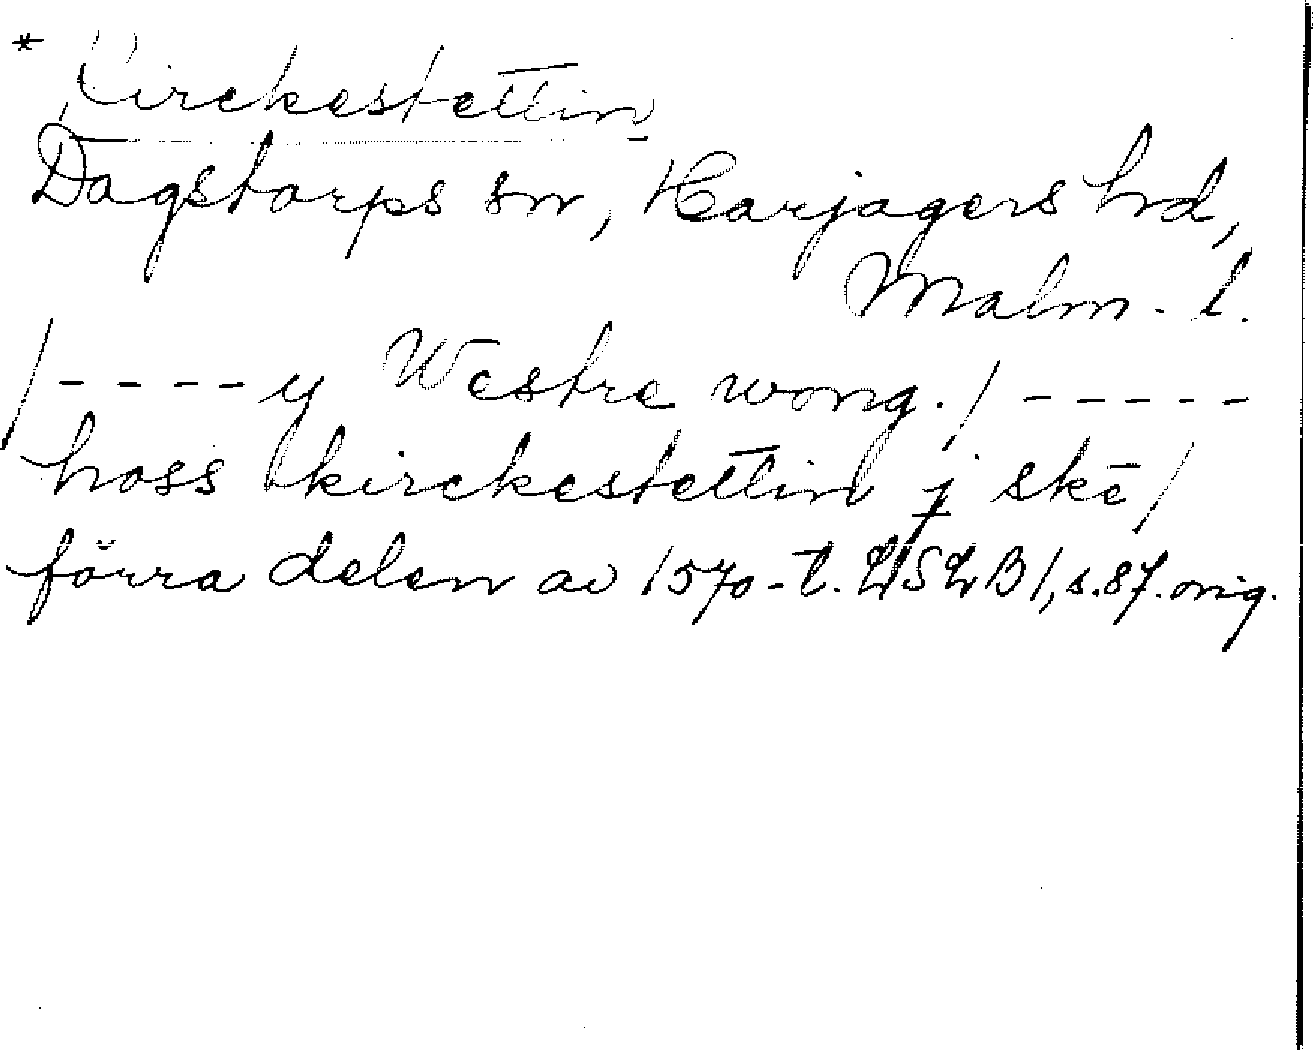 * Kirckestettin
Dagstorps sn, Harjagers hd,
Malm. l.
/ - - - - y Westre wong. / - - - - -
hoss kirckestettin j skē /
förra delen av 1570-t. LUSLB 1, s. 87. orig.